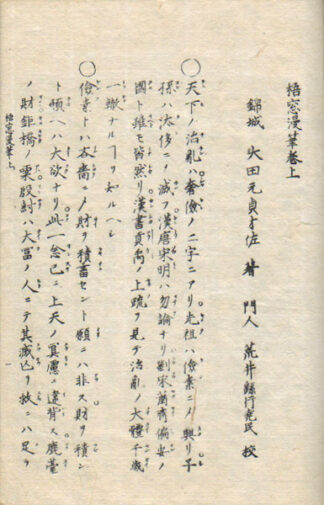 梧窓漫筆巻上
錦城 大田元貞才佐 著 門人 荒井繇行堯民 校
〇天下ノ治乱ハ奢倹ノ二字ニアリ先祖ハ倹素ニメ興リ子
孫ハ汰侈ニメ滅フ漢唐宋明ハ勿論ナリ劉宋蕭齊偏安ノ
國ト雖モ皆然リ漢書貢禹ノ上疏ヲ見テ治乱ノ大體千歳
一轍ナルヿヲ知ルヘシ
〇倹素トハ吝嗇ノ財ヲ積畜セント願ニハ非ス財ヲ積ン
ト願ヘハ大欲ナリ此一念已ニ上天ノ冥慮ニ違背ス鹿臺
ノ財鉅橋ノ粟殷紂ハ大冨ノ人ニテ其滅亡ヲ救ニハ足ラ
梧窓漫筆上